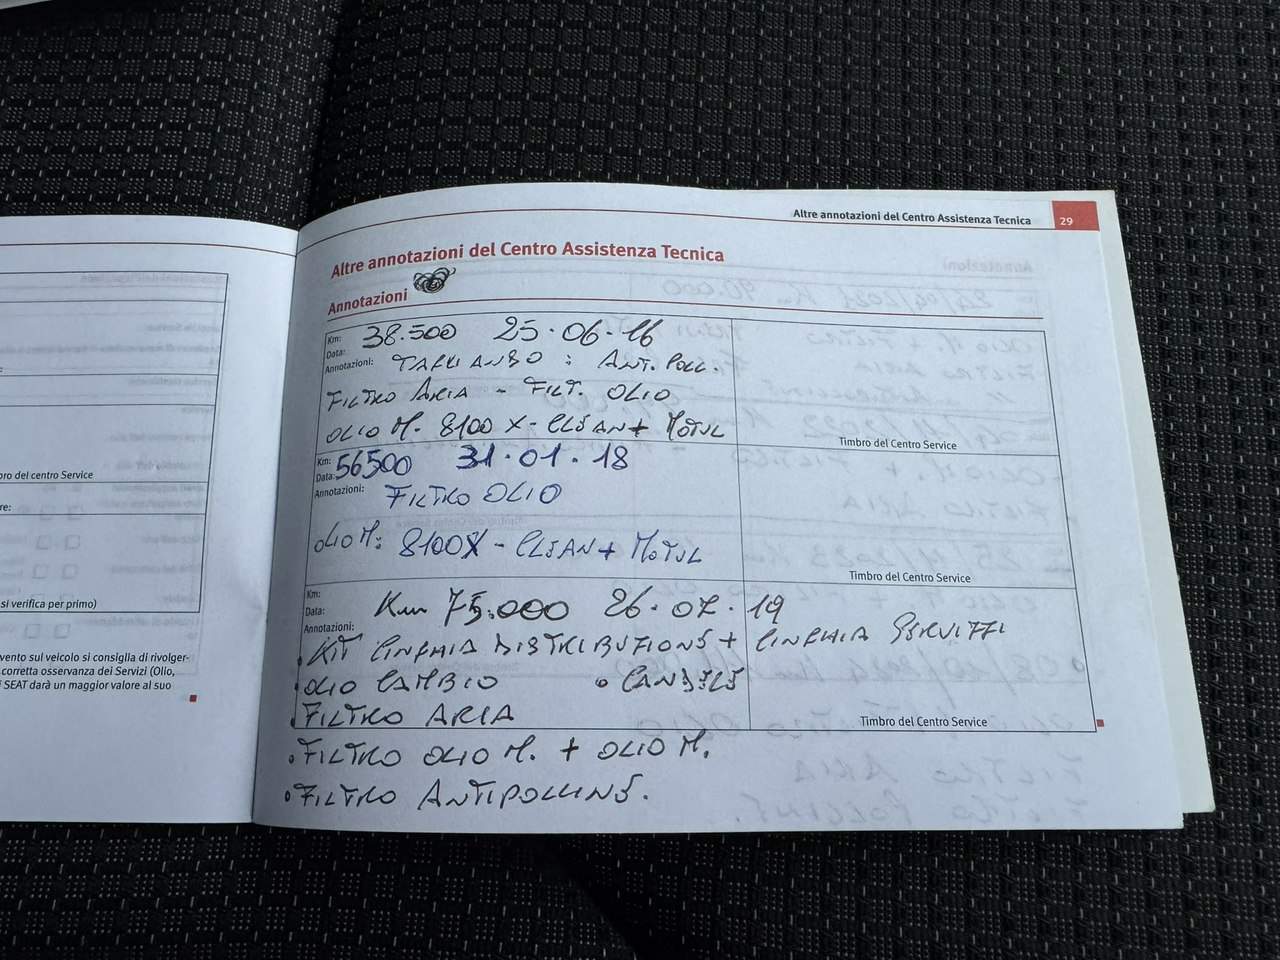 bro del centro Service
re:
si verifica per primo)
vento sul veicolo si consiglia di rivolger-
corretta osservanza dei Servizi (Olio,
i SEAT darà un maggior valore al suo
Altre annotazioni del Centro Assistenza Tecnica 29
Altre annotazioni del Centro Assistenza Tecnica
Annotazioni
Km: 38.500 25.06.16
Data:
Annotazioni: TAGLIANDO : ANT. POLL.
FILTRO ARIA - FILT. OLIO
OLIO M. 8100 X-CLEAN+ MOTUL
Timbro del Centro Service
Km: 56500 31.01.18
Data:
Annotazioni: FILTRO OLIO
OLIO M: 8100X - CLEAN+ MOTUL
Timbro del Centro Service
Km:
Data: Km 75.000 26.07.19
Annotazioni:
• KIT CINGHIA DISTRIBUZIONE + CINGHIA SERVIZI
• OLIO CAMBIO • CANDELE
• FILTRO ARIA
Timbro del Centro Service
• FILTRO OLIO M. + OLIO M.
• FILTRO ANTIPOLLINE.